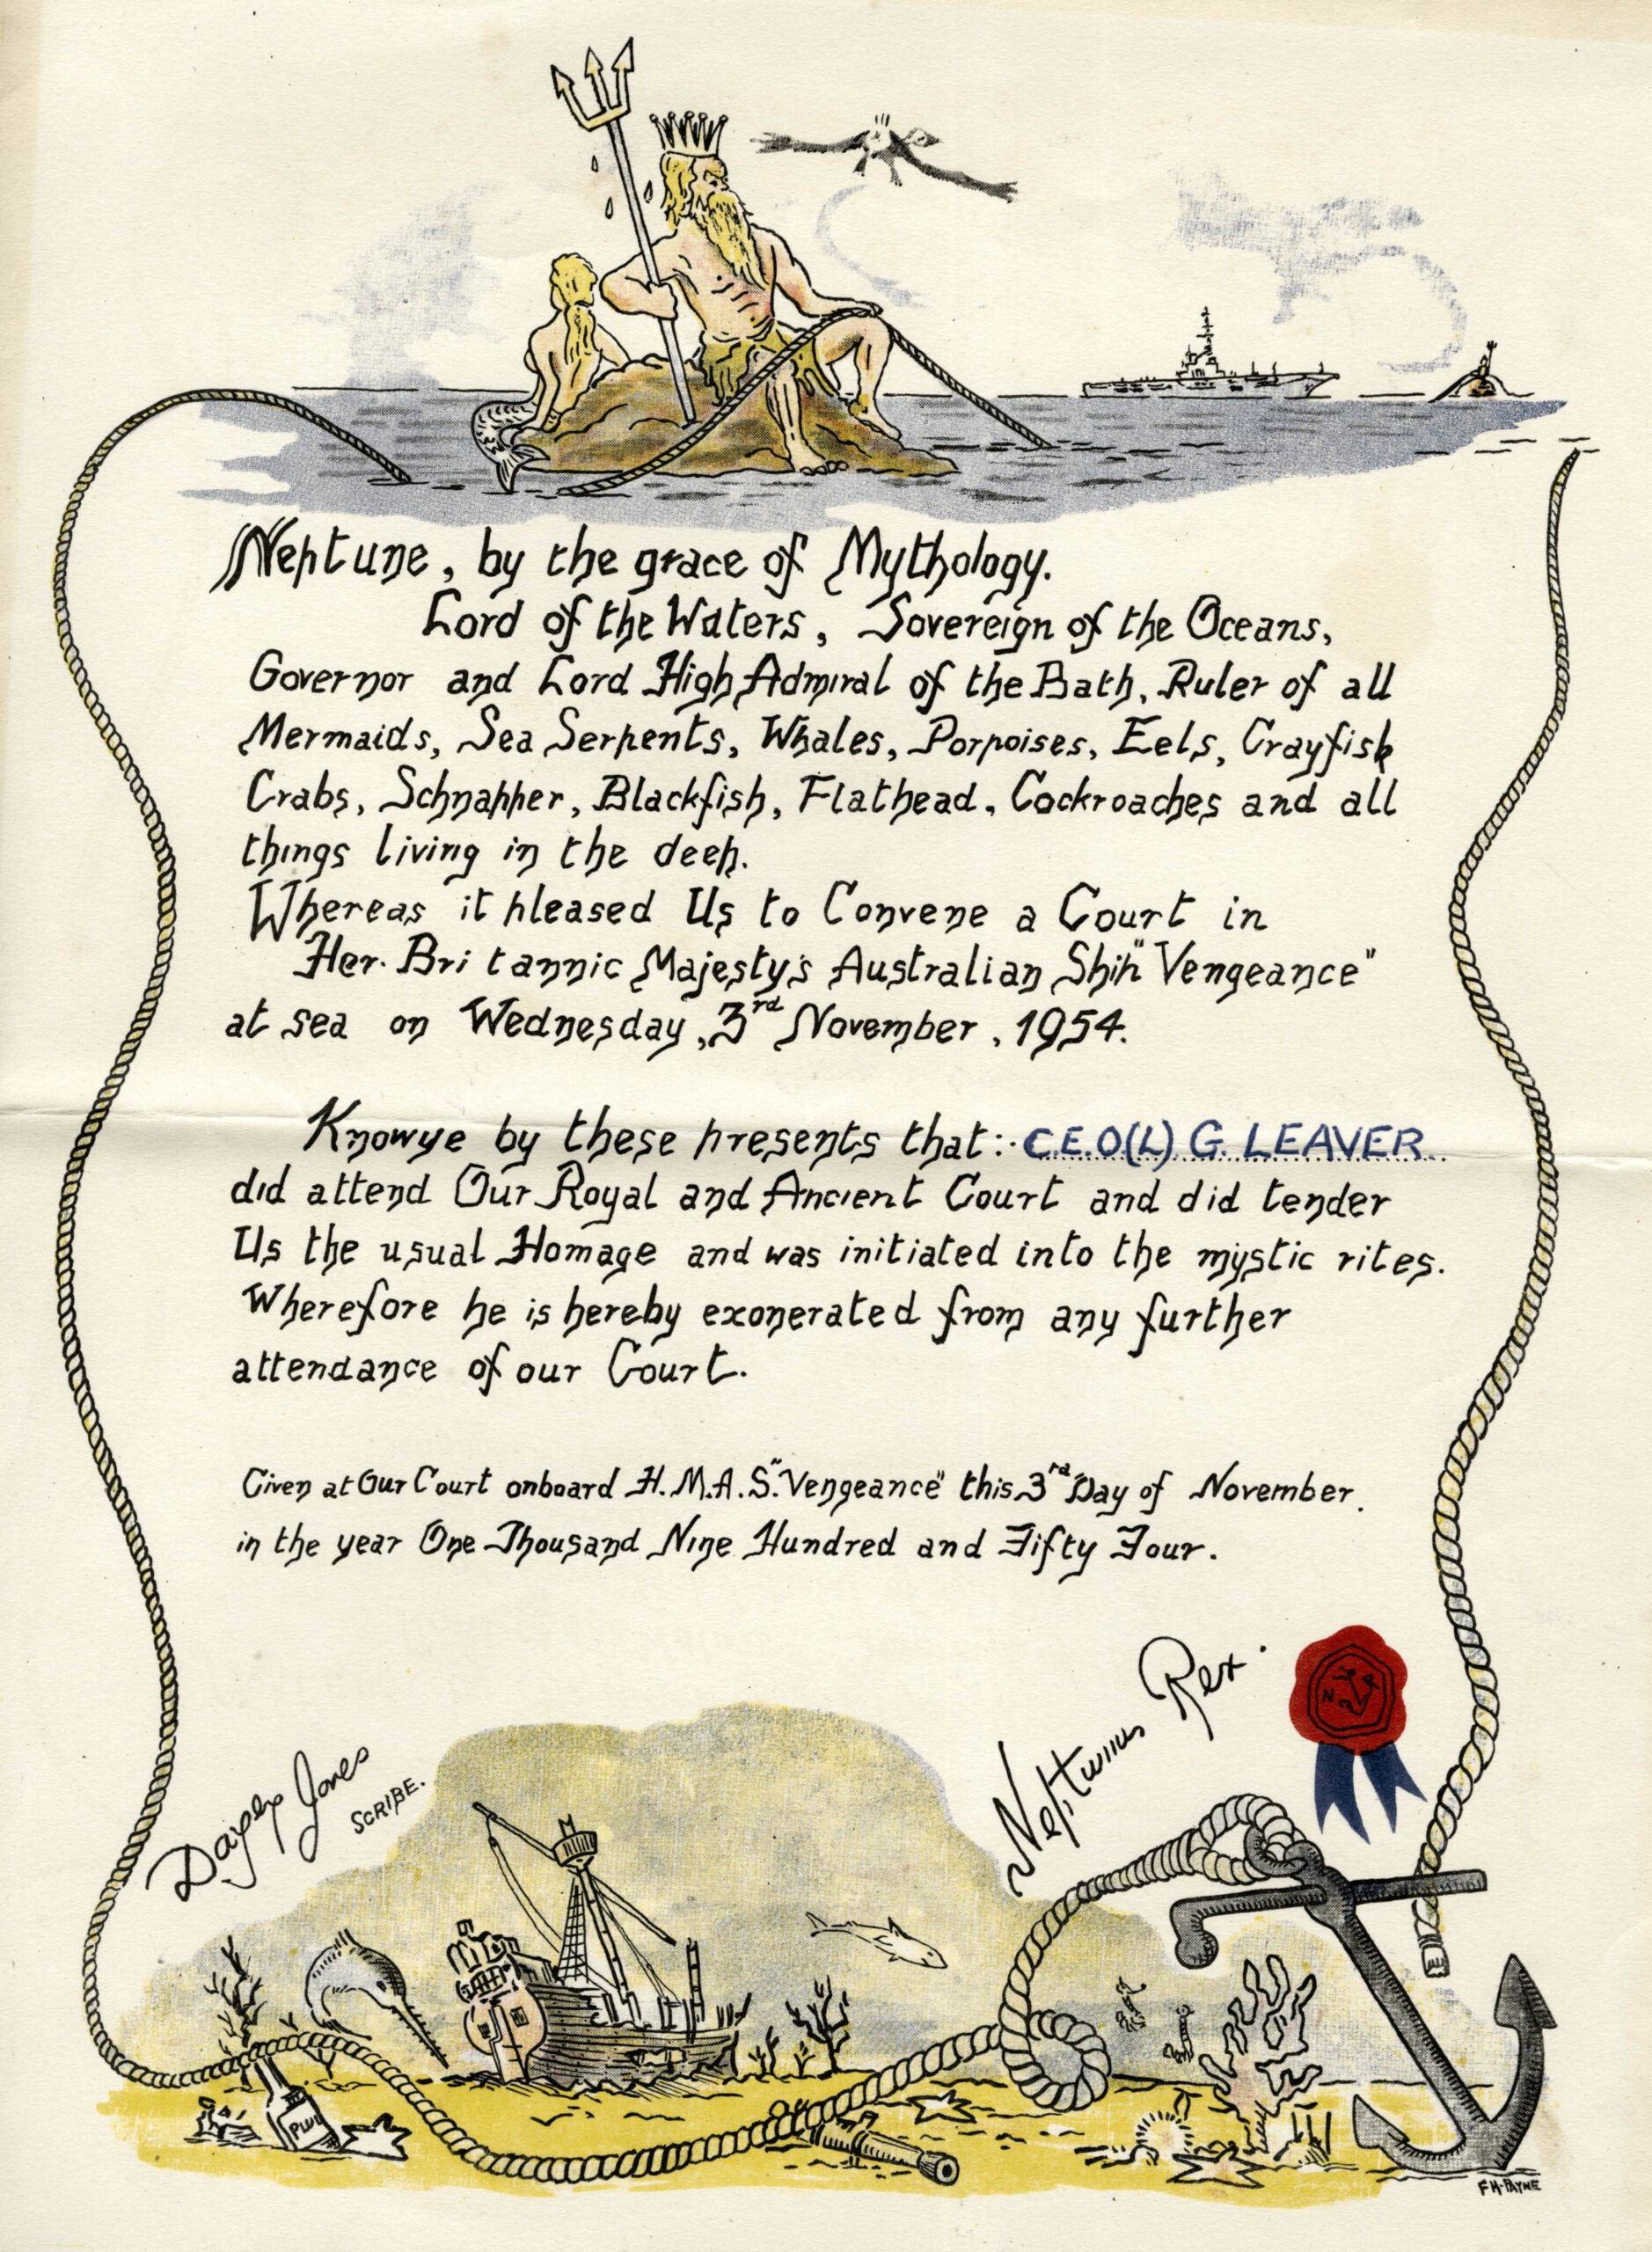 Neptune, by the grace of Mythology.
Lord of the Waters, Sovereign of the Oceans,
Governor and Lord High Admiral of the Bath, Ruler of all
Mermaids, Sea Serpents, Whales, Porpoises, Eels, Crayfish
Crabs, Schnapper, Blackfish, Flathead, Cockroaches and all
things living in the deep.
Whereas it pleased Us to Convene a Court in
Her Britannic Majesty's Australian Ship "Vengeance"
at sea on Wednesday, 3rd November, 1954.
Knowye by these presents that:- C.E.O(L) G. LEAVER
did attend Our Royal and Ancient Court and did tender
Us the usual Homage and was initiated into the mystic rites.
Wherefore he is hereby exonerated from any further
attendance of our Court.
Given at Our Court onboard H.M.A.S. "Vengeance" this 3rd Day of November.
in the year One Thousand Nine Hundred and Fifty Four.
Neptunus Rex.
Davey Jones
SCRIBE.
F.H. PAYNE